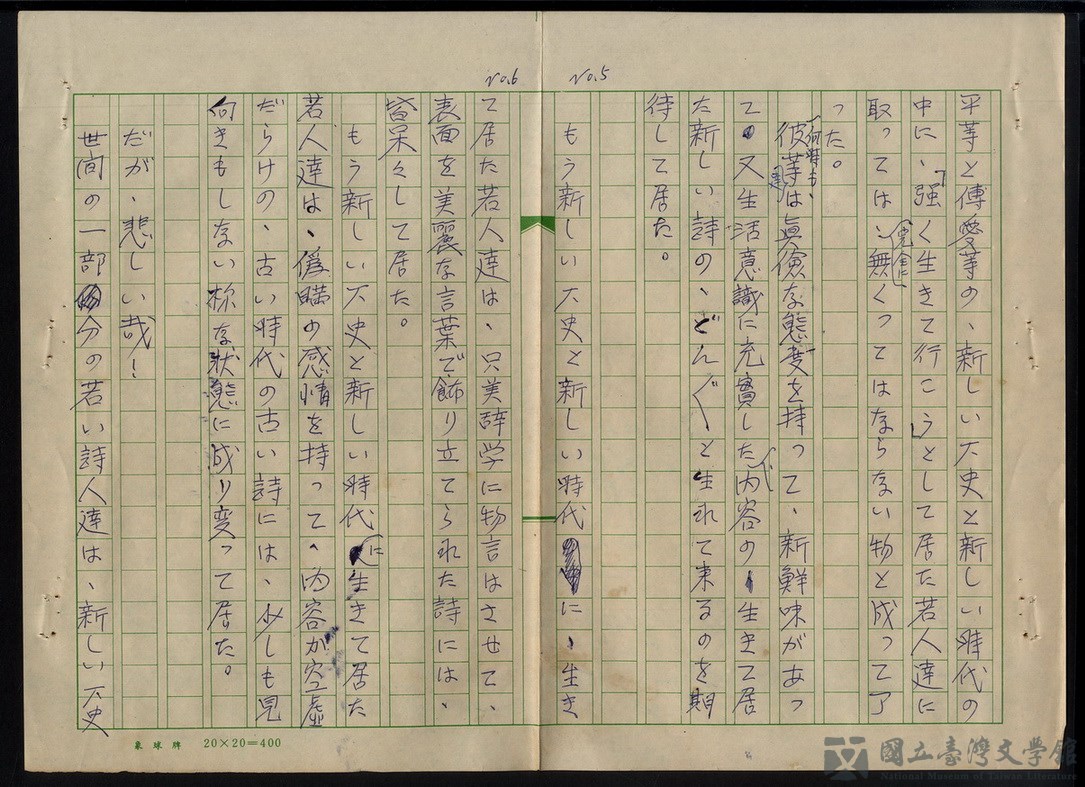 No.5
平等と傅愛等の、新しい大史と新しい時代の
中に、「強く生きて行こうとして居た若人達に
取っては、完全に無くってはならない物と成って了
った。
何時も、
彼等達は眞倹な態度を持って、新鮮味があっ
て又生活意識に充實した、内容の生きて居
た新しい詩の、どんぐ〱と生れて来るのを期
待して居た。
もう新しい大史と新しい時代に、生き
No.6
て居た若人達は、只美辞学に物言はさせて、
表面を美麗な言葉で飾り立てられた詩には、
皆呆々して居た。
もう新しい大史と新しい時代に生きて居た
若人達は、偽瞞の感情を持って、内容が空虚
だらけの、古い時代の古い詩には、少しも見
向きもしない様な狀態に成り変って居た。
だが、悲しい哉!
世間の一部分の若い詩人達は、新しい大史
象球牌 20×20=400
國立臺灣文學館
National Museum of Taiwan Literature